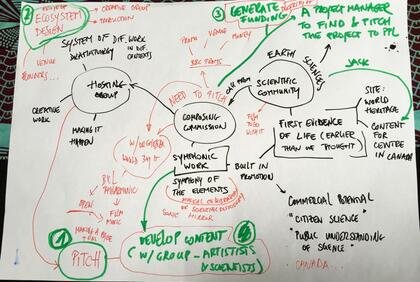 2
ECOSYSTEM
DESIGN
CREATIVE GROUP
PRODUCTION
VENUE
SYSTEM OF DIF. WORK
IN DIF. CONTEXTS
HOSTING
GROUP
CREATIVE
WORK
MAKING IT
HAPPEN
3
GENERATE
FUNDING
A PROJECT MANAGER
TO FIND & PITCH
THE PROJECT TO PPL
VENUE
MONEY
BBC PROMS
EARTH
SCIENCES
JACK
NEED TO PITCH
CALL FROM
SCIENTIFIC
COMMUNITY
SITE:
WORLD
HERITAGE
COMPOSING
COMMISSION
W/ ORCHESTRA
WOULD BUY IT
FIRST EVIDENCE
OF LIFE (EARLIER
THAN WE THOUGHT)
CONTENT FOR
CENTRE IN
CANADA
SYMPHONIC
WORK
BUILT IN
PROMOTION
SYMPHONY OF THE ELEMENTS
OF SCIENTIFIC DISCOVERY
SONIC
MIRROR
PHILHARMONIC
OPEN
FILM
MUSIC
COMMERCIAL POTENTIAL
"CITIZEN SCIENCE"
"PUBLIC UNDERSTANDING
OF SCIENCE"
CANADA...
1
PITCH
MAKING A
DEVELOP CONTENT
(W/ GROUP - ARTISTISTS
& SCIENTISTS)